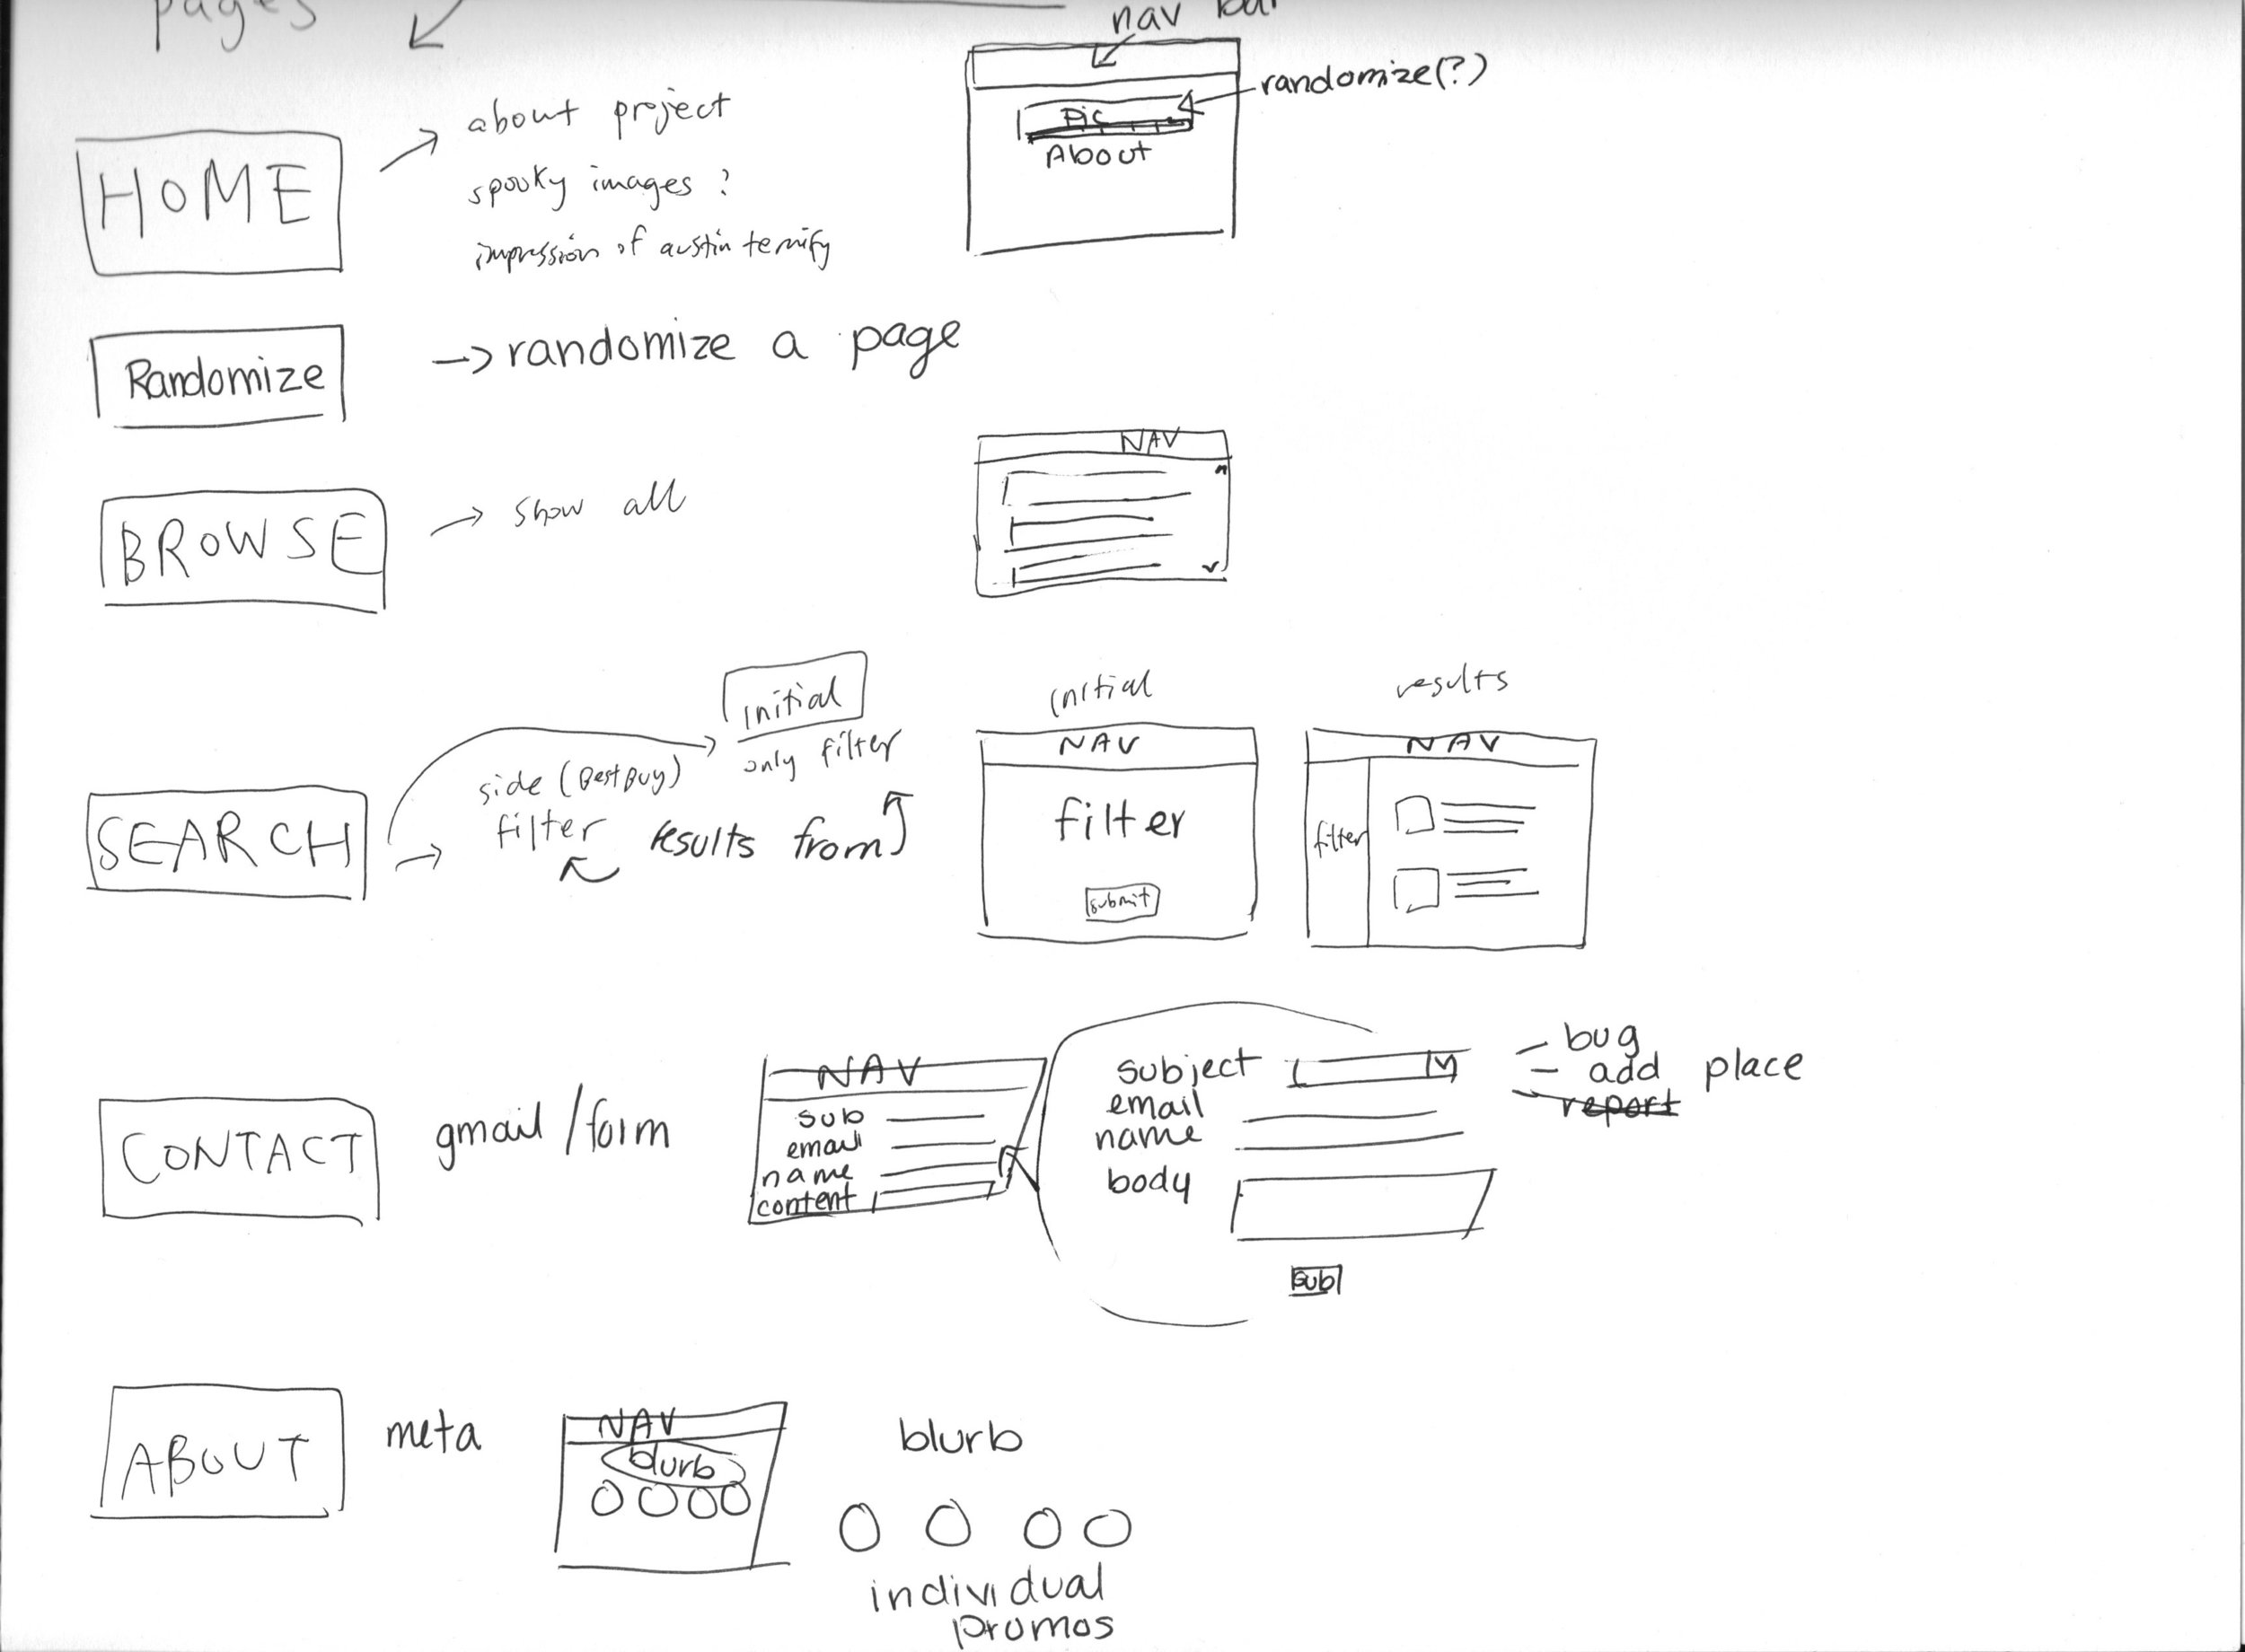 pages
nav bar
HOME
about project
spooky images ?
impression of austin terrify
Pic
About
randomize(?)
Randomize
randomize a page
BROWSE
show all
NAV
SEARCH
initial
only filter
side (BestBuy)
filter
results from
initial
NAV
filter
submit
results
NAV
filter
CONTACT
gmail/form
NAV
sub
email
name
content
subject
email
name
body
sub
- bug
- add place
- report
ABOUT
meta
NAV
blurb
blurb
individual
promos